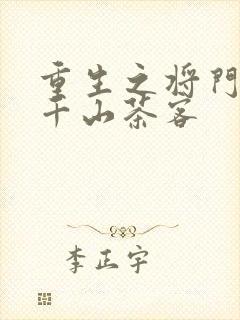 重生之将门
千山茶客
李正宇